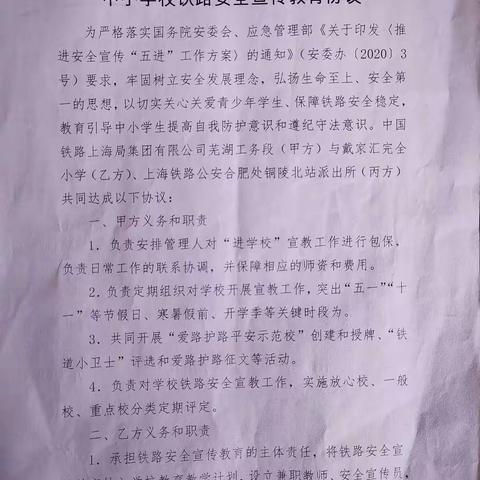 中小学校铁路安全宣传教育协议
为严格落实国务院安委会、应急管理部《关于印发〈推
进安全宣传“五进”工作方案〉的通知》（安委办〔2020〕3
号）要求，牢固树立安全发展理念，弘扬生命至上、安全第
一的思想，以切实关心关爱青少年学生、保障铁路安全稳定，
教育引导中小学生提高自我防护意识和遵纪守法意识。中国
铁路上海局集团有限公司芜湖工务段（甲方）与戴家汇完全
小学（乙方）、上海铁路公安合肥处铜陵北站派出所（丙方）
共同达成以下协议：
一、甲方义务和职责
1．负责安排管理人对“进学校”宣教工作进行包保，
负责日常工作的联系协调，并保障相应的师资和费用。
2．负责定期组织对学校开展宣教工作，突出“五一”“十
一”等节假日、寒暑假前、开学季等关键时段为。
3．共同开展“爱路护路平安示范校”创建和授牌、“铁
道小卫士”评选和爱路护路征文等活动。
4．负责对学校铁路安全宣教工作，实施放心校、一般
校、重点校分类定期评定。
二、乙方义务和职责
1．承担铁路安全宣传教育的主体责任，将铁路安全宣
学校教育教学计划，设立兼职教师、安全宣传员，